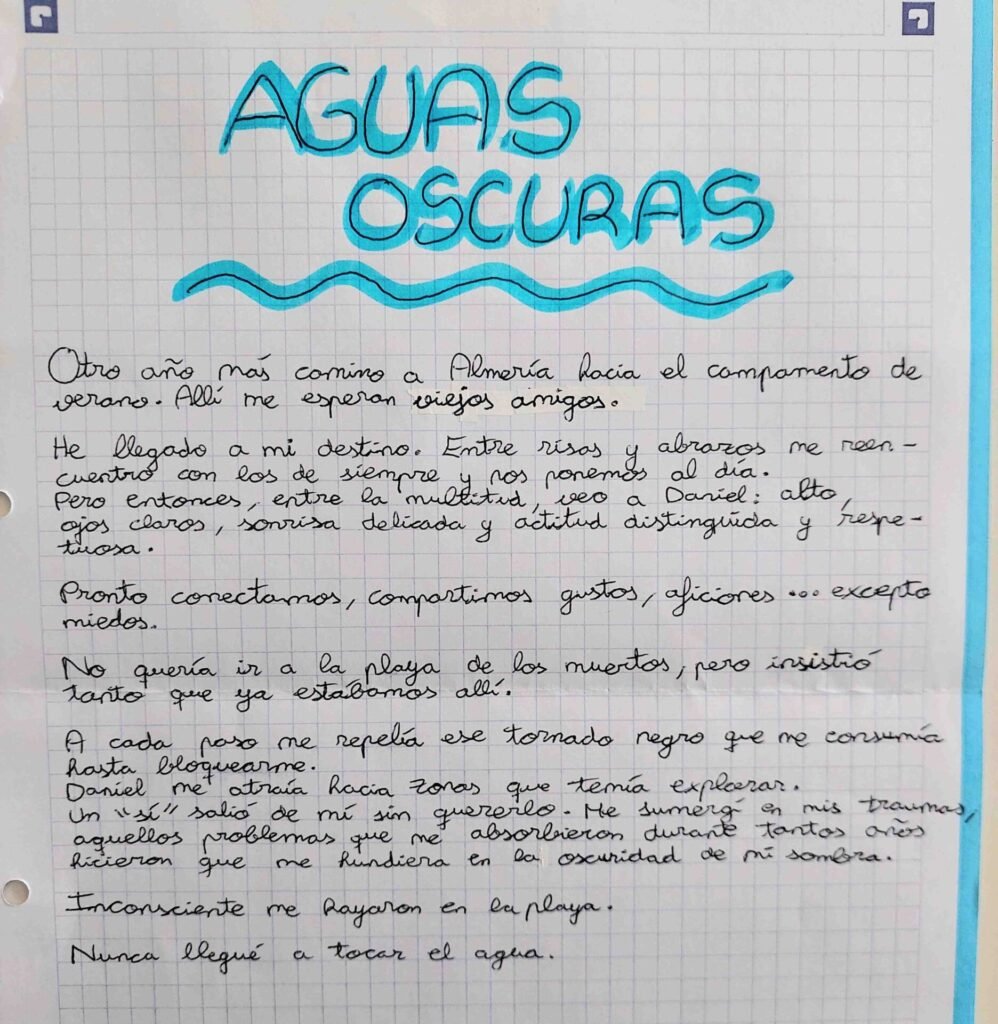 AGUAS
OSCURAS
Otro año más camino a Almería hacia el campamento de
verano. Allí me esperan viejos amigos.
He llegado a mi destino. Entre risas y abrazos me reen-
cuentro con los de siempre y nos ponemos al día.
Pero entonces, entre la multitud, veo a Daniel: alto,
ojos claros, sonrisa delicada y actitud distinguida y respe-
tuosa.
Pronto conectamos, compartimos gustos, aficiones ... excepto
miedos.
No quería ir a la playa de los muertos, pero insistió
tanto que ya estábamos allí.
A cada paso me repelía ese tornado negro que me consumía
hasta bloquearme.
Daniel me atraía hacia zonas que temía explorar.
Un "sí" salió de mí sin quererlo. Me sumergí en mis traumas,
aquellos problemas que me absorbieron durante tantos años
hicieron que me hundiera en la oscuridad de mi sombra.
Inconsciente me hayaron en la playa.
Nunca llegué a tocar el agua.